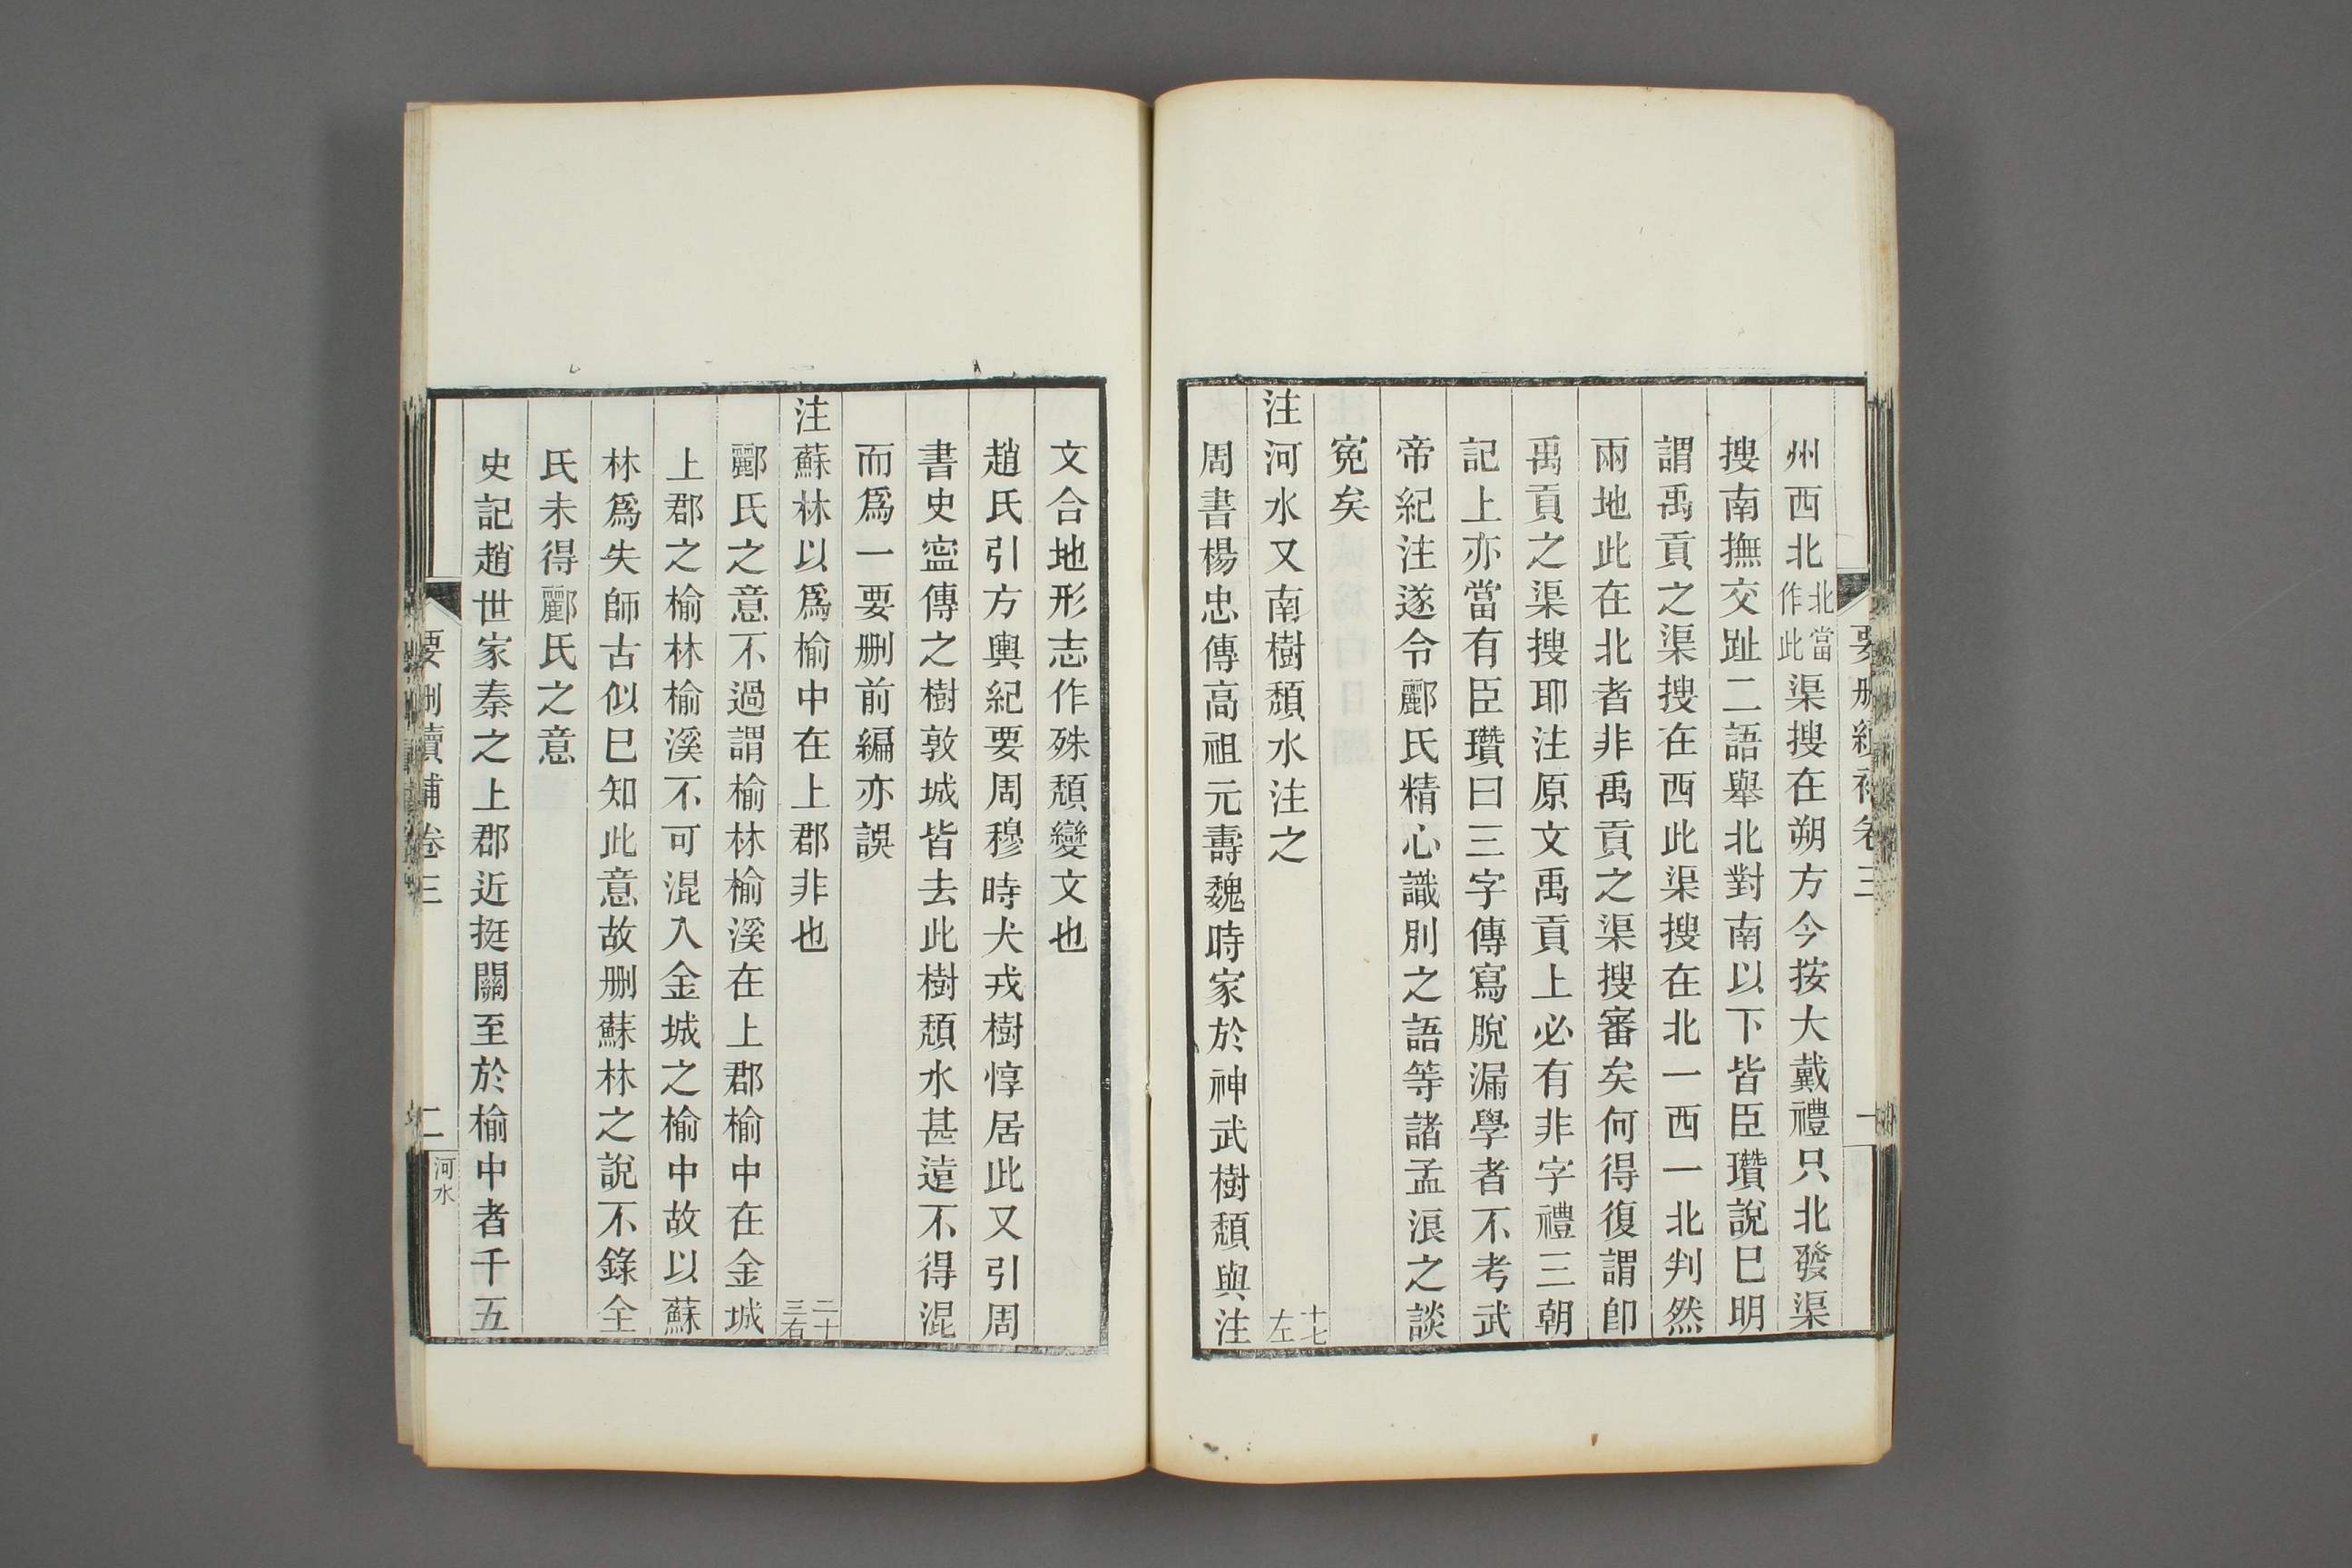 要刪續補卷三
一
州西北北當作此渠搜在朔方今按大戴禮只北發渠
搜南撫交趾二語舉北對南以下皆臣瓚說巳明
謂禹貢之渠搜在西此渠搜在北一西一北判然
兩地此在北者非禹貢之渠搜審矣何得復謂卽
禹貢之渠搜耶注原文禹貢上必有非字禮三朝
記上亦當有臣瓚曰三字傳寫脫漏學者不考武
帝紀注遂令酈氏精心識別之語等諸孟浪之談
寃矣
注河水又南樹頹水注之十七左
周書楊忠傳高祖元壽魏時家於神武樹頹與注
文合地形志作殊頹變文也
趙氏引方輿紀要周穆時犬戎樹惇居此又引周
書史寍傳之樹敦城皆去此樹頹水甚遠不得混
而爲一要刪前編亦誤
注蘇林以爲榆中在上郡非也二十三右
酈氏之意不過謂榆林榆溪在上郡榆中在金城
上郡之榆林榆溪不可混入金城之榆中故以蘇
林爲失師古似巳知此意故刪蘇林之說不錄全
氏未得酈氏之意
史記趙世家秦之上郡近挺關至於榆中者千五
要刪續補卷三
二
河水